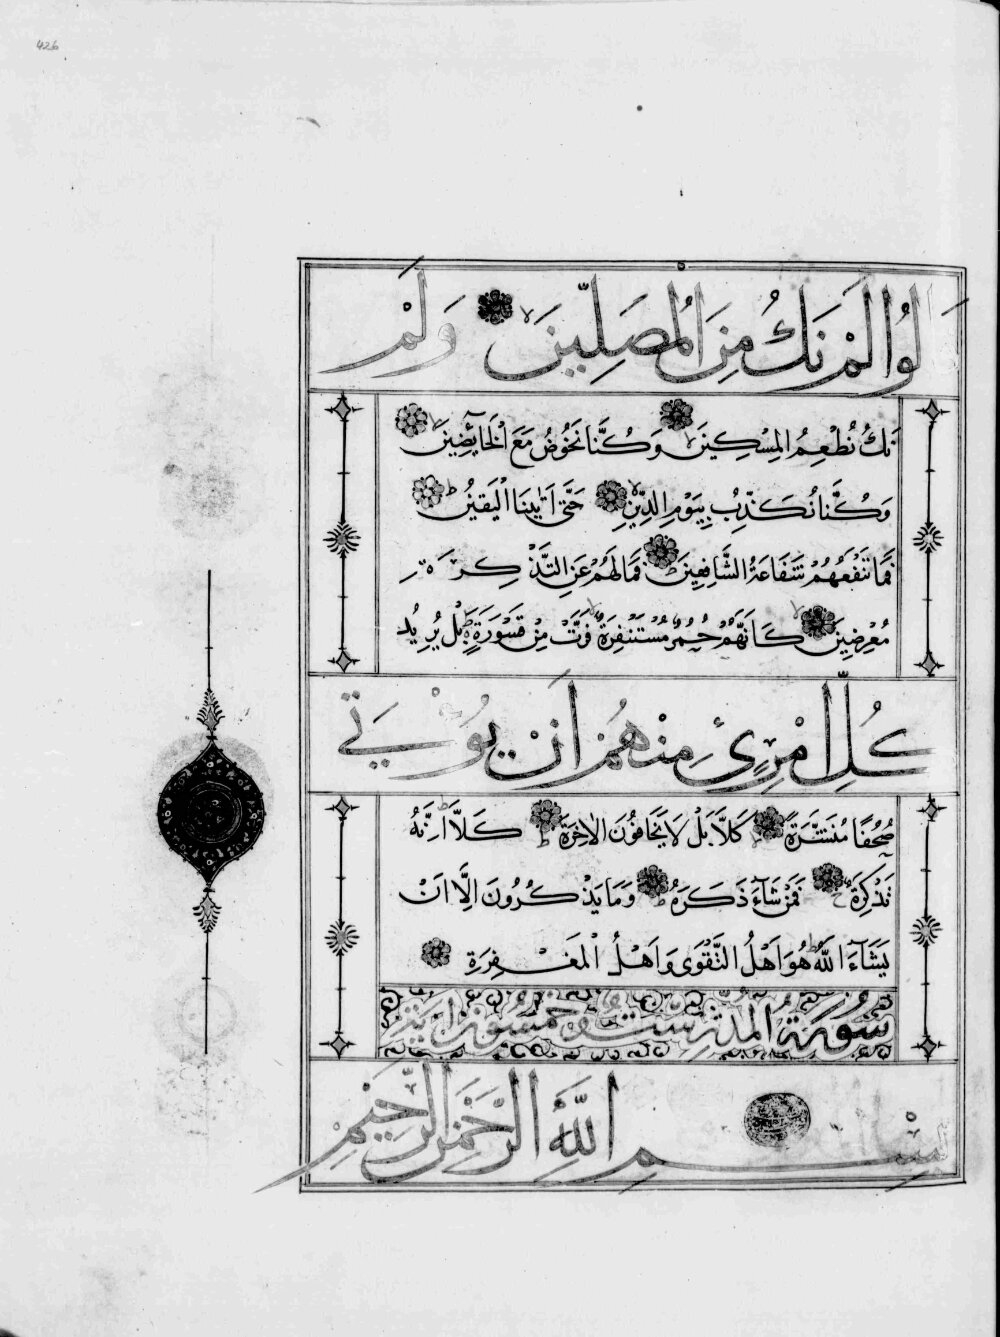 426
لُوا لَمْ نَكُ مِنَ الْمُصَلِّينَ وَلَمْ
نَكُ نُطْعِمُ الْمِسْكِينَ وَكُنَّا نَخُوضُ مَعَ الْخَائِضِينَ
وَكُنَّا نُكَذِّبُ بِيَوْمِ الدِّينِ حَتَّى اَتٰينَا الْيَقِينُ
فَمَا تَنْفَعُهُمْ شَفَاعَةُ الشَّافِعِينَ فَمَا لَهُمْ عَنِ التَّذْكِرَةِ
مُعْرِضِينَ كَاَنَّهُمْ حُمُرٌ مُسْتَنْفِرَةٌ فَرَّتْ مِنْ قَسْوَرَةٍ بَلْ يُرِيدُ
كُلُّ امْرِئٍ مِنْهُمْ اَنْ يُؤْتٰى
صُحُفًا مُنَشَّرَةً كَلَّا بَلْ لَا يَخَافُونَ الْاٰخِرَةَ كَلَّا اِنَّهُ
تَذْكِرَةٌ فَمَنْ شَآءَ ذَكَرَهُ وَمَا يَذْكُرُونَ اِلَّا اَنْ
يَشَآءَ اللّٰهُ هُوَ اَهْلُ التَّقْوٰى وَاَهْلُ الْمَغْفِرَةِ
سُورَةُ الْمُدَّثِّر سِتٌّ وَخَمْسُونَ اٰيَةً
بِسْمِ اللّٰهِ الرَّحْمٰنِ الرَّحِيمِ